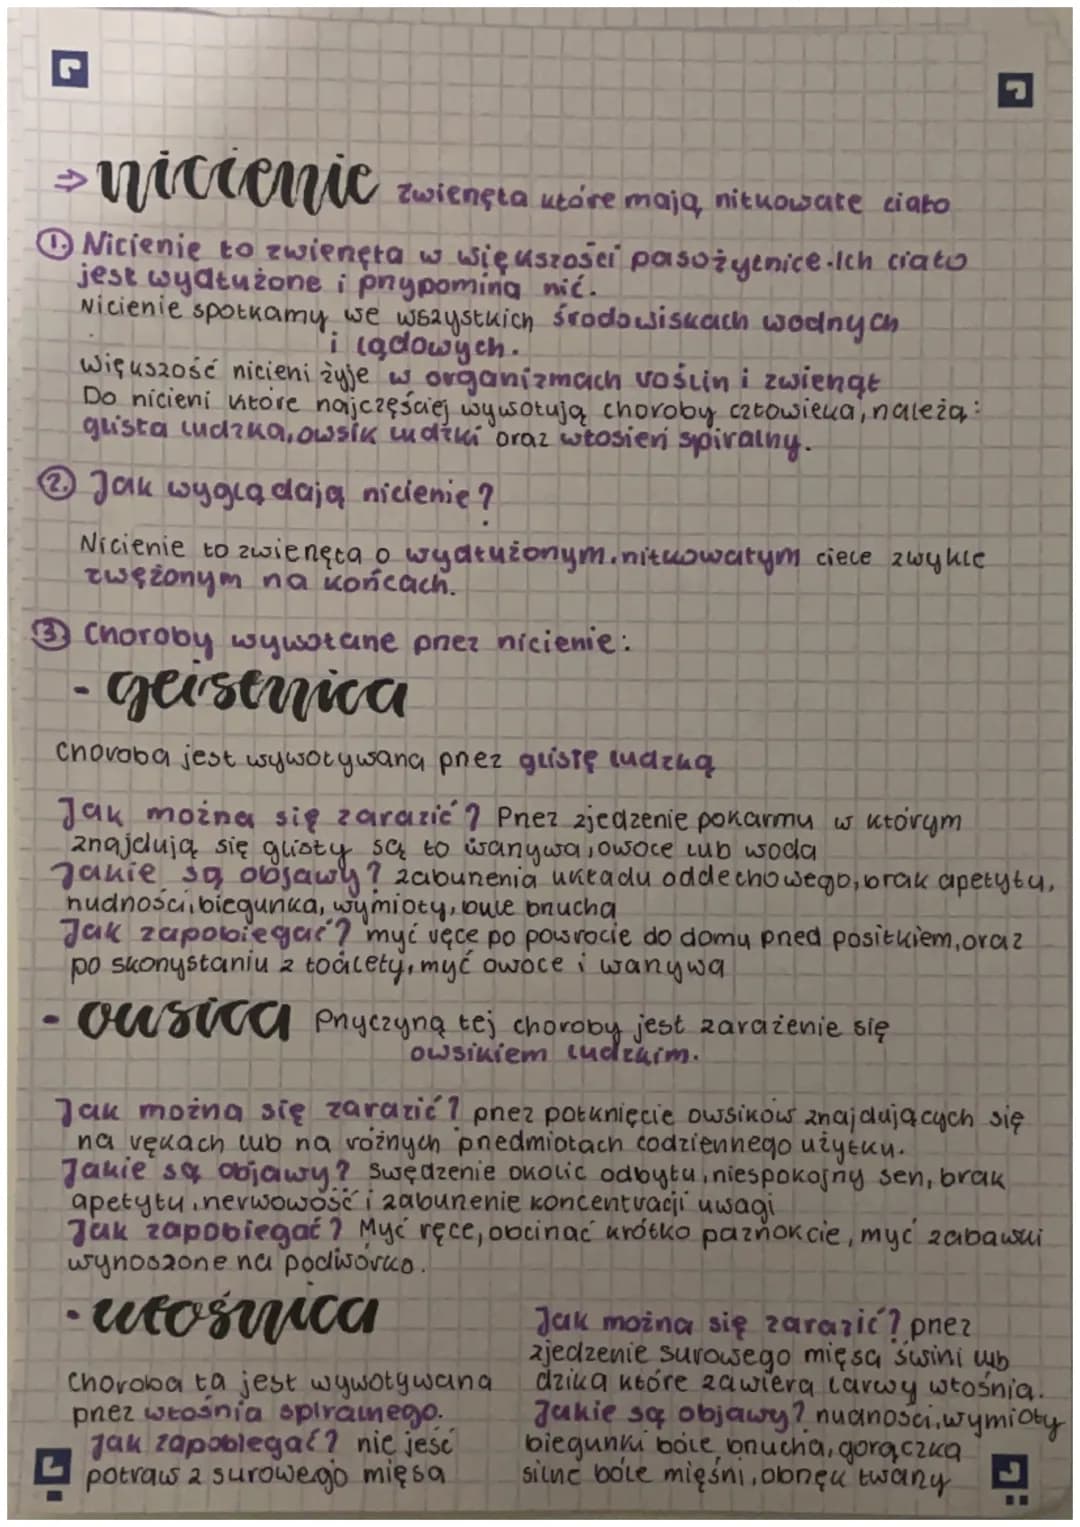 ⇒ nicienie zwierzęta które mają nitkowate ciało
1. Nicienie to zwierzęta w większości pasożytnice. Ich ciało
jest wydłużone i przypomina nić.
Nicienie spotkamy we wszystkich środowiskach wodnych
i lądowych.
większość nicieni żyje w organizmach roślin i zwierząt
Do nicieni które najczęściej wywołują choroby człowieka, należą:
glista ludzka, owsik ludzki oraz włosień spiralny.
2. Jak wyglądają nicienie?
Nicienie to zwierzęta o wydłużonym, nitkowatym ciele zwykle
zwężonym na końcach.
3. Choroby wywołane przez nicienie:
- geistnica
choroba jest wywoływana przez glistę ludzką
Jak można się zarazić? Przez zjedzenie pokarmu w którym
znajdują się glisty są to warzywa, owoce lub woda
Jakie są objawy? zaburzenia układu oddechowego, brak apetytu,
nudności, biegunka, wymioty, bule brzucha
Jak zapobiegać? myć ręce po powrocie do domu przed posiłkiem, oraz
po skorzystaniu z toalety, myć owoce i warzywa
- owsica Przyczyną tej choroby jest zarażenie się
owsikiem ludzkim.
Jak można się zarazić? przez połknięcie owsików znajdujących się
na rękach lub na różnych przedmiotach codziennego użytku.
Jakie są objawy? swędzenie okolic odbytu, niespokojny sen, brak
apetytu, nerwowość i zaburzenie koncentracji uwagi
Jak zapobiegać? Myć ręce, obcinać krótko paznokcie, myć zabawki
wynoszone na podwórko.
- włośnica
Choroba ta jest wywoływana
przez włośnia spiralnego.
Jak zapobiegać? nie jeść
potraw z surowego mięsa
Jak można się zarazić? przez
zjedzenie surowego mięsa świni lub
dzika które zawiera larwy włośnia.
Jakie są objawy? nudności, wymioty
biegunki bóle brzucha, gorączka
silne bóle mięśni, obrzęk twarzy